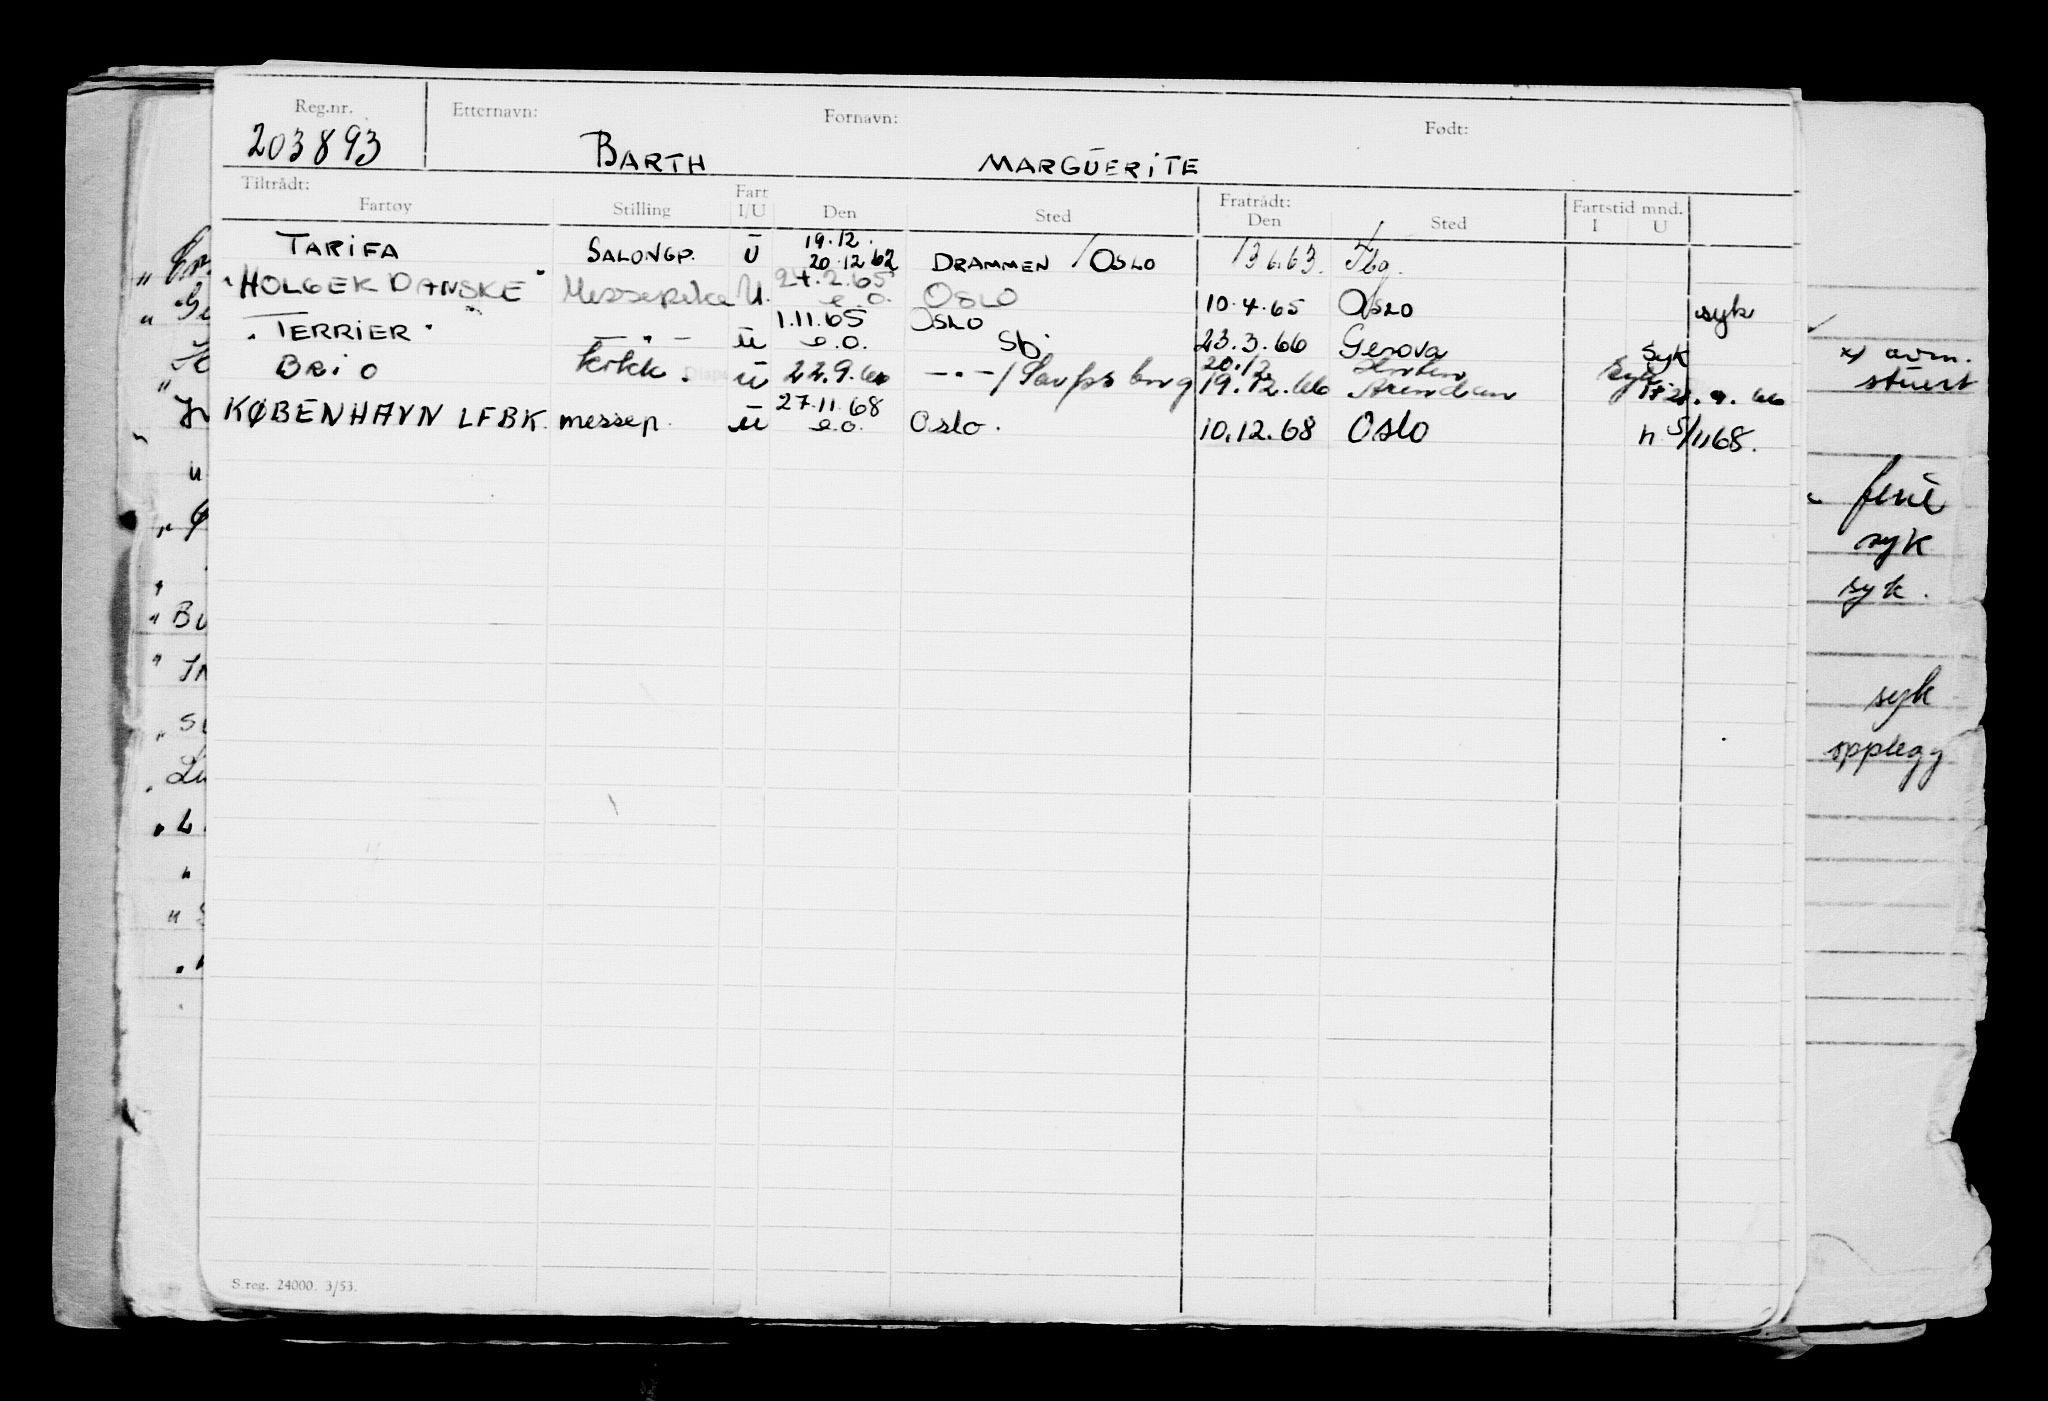 Reg.nr. Etternavn: Fornavn: Født:
203893 BARTH MARGUERITE
Tiltrådt: Fart Fratrådt: Fartstid mnd.
Fartøy Stilling I/U Den Sted Den Sted I U
TARIFA SALONGP. U 19.12. 20.12.62 DRAMMEN / OSLO 13.6.63. Tbg.
"HOLGER DANSKE" Messepike U. 24.2.65 e.o. OSLO 10.4.65 OSLO syk
"TERRIER" — " — U 1.11.65 e.o. OSLO Sbj 23.3.66 Genova syk
BRIO kokk. U 22.9.66 — " — / Sarpsborg 20.12 19.12.66 Arendal syk
KØBENHAVN LFBK. messep. U 27.11.68 e.o. Oslo. 10.12.68 Oslo n 5/1168.
S.reg. 24000. 3/53.
x) avm.
stuert
ferie
syk
syk.
syk
opplegg